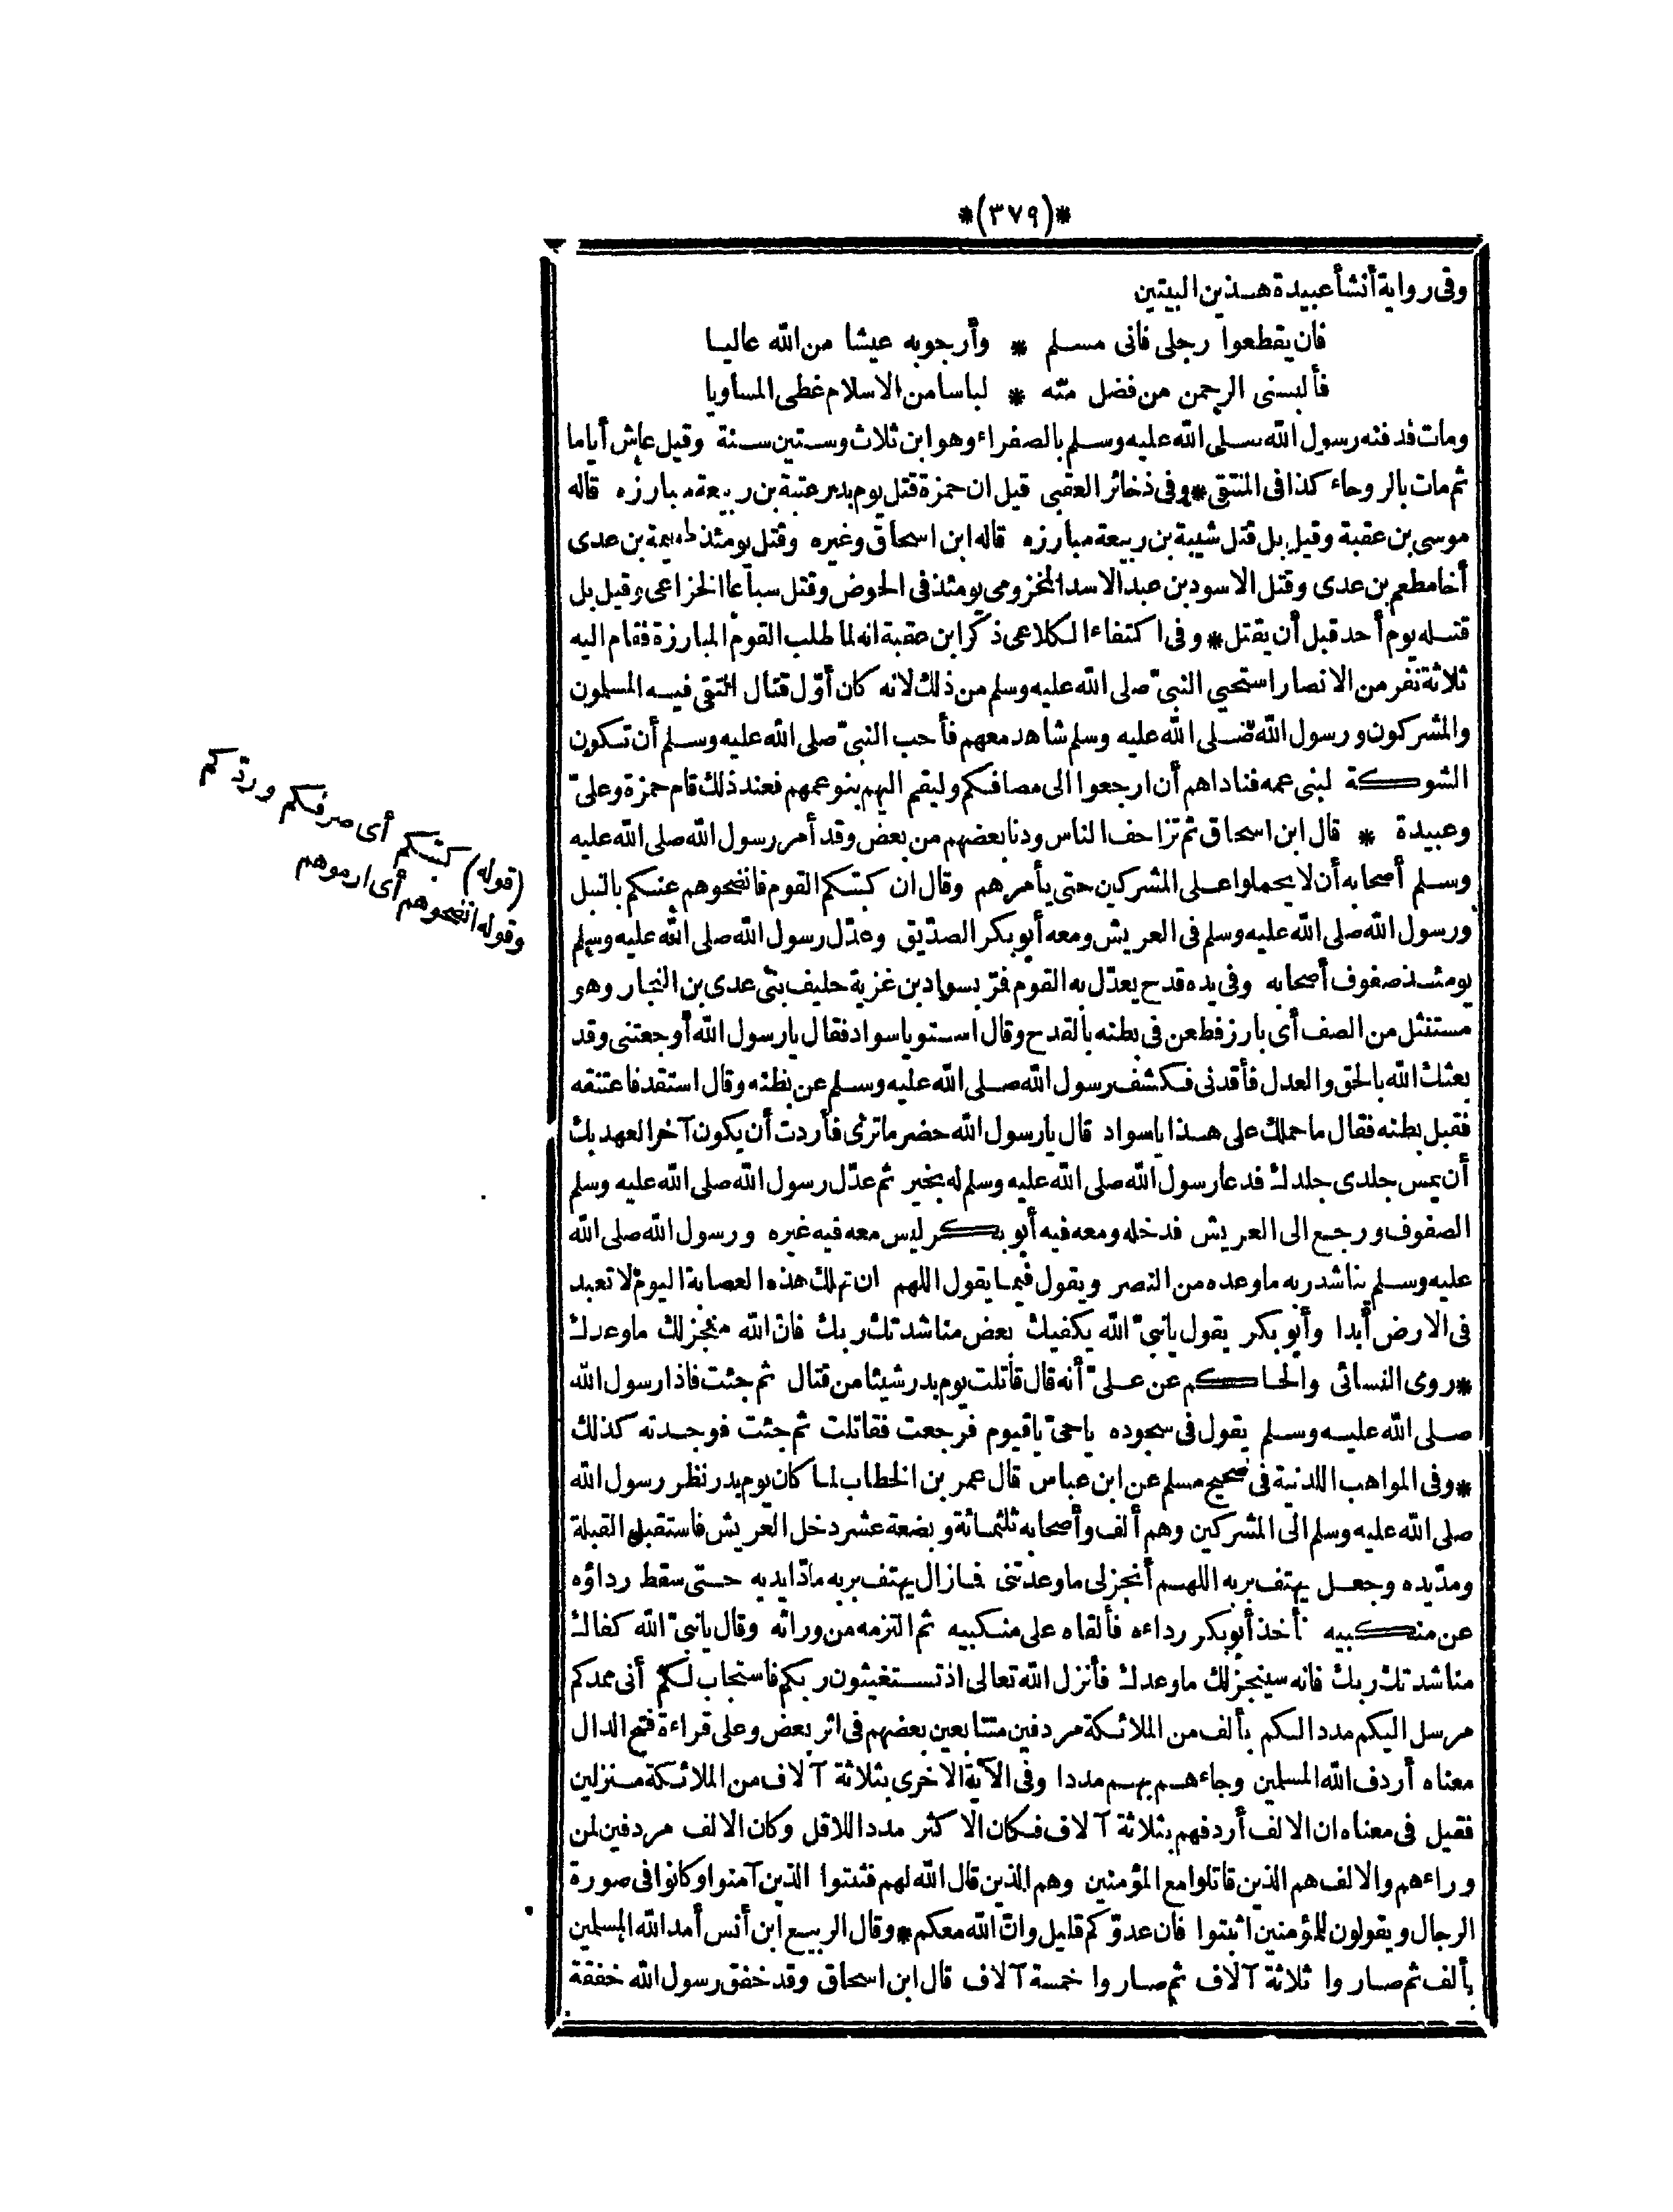 *(٣٧٩)*
وفى رواية أنشأ عبيدة هذين البيتين
فان يقطعوا رجلى فانى مسلم * وأرجو به عيشا من الله عاليا
فألبسنى الرحمن من فضل منّه * لباسا من الاسلام غطى المساويا
ومات فدفنه رسول الله صلى الله عليه وسلم بالصفراء وهو ابن ثلاث وستين سنة وقيل عاش أياما
ثم مات بالروحاء كذا فى المنتقى * وفى ذخائر العقبى قيل ان حمزة قتل يوم بدر عتبة بن ربيعة مبارزه قاله
موسى بن عقبة وقيل بل قتل شيبة بن ربيعة مبارزه قاله ابن اسحاق وغيره وقتل يومئذ طعيمة بن عدى
أخا مطعم بن عدى وقتل الاسود بن عبد الاسد المخزومى يومئذ فى الحوض وقتل سباعا الخزاعى وقيل بل
قتله يوم أحد قبل أن يقتل * وفى اكتفاء الكلاعى ذكر ابن عقبة انه لما طلب القوم المبارزة فقام اليه
ثلاثة نفر من الانصار استحيى النبىّ صلى الله عليه وسلم من ذلك لانه كان أوّل قتال التقى فيه المسلمون
والمشركون ورسول الله صلى الله عليه وسلم شاهد معهم فأحب النبىّ صلى الله عليه وسلم أن تكون
الشوكة لبنى عمه فناداهم أن ارجعوا الى مصافكم وليقم اليهم بنو عمهم فعند ذلك قام حمزة وعلىّ
وعبيدة * قال ابن اسحاق ثم تزاحف الناس ودنا بعضهم من بعض وقد أمر رسول الله صلى الله عليه
وسلم أصحابه أن لا يحملوا على المشركين حتى يأمرهم وقال ان كتبكم القوم فانضحوهم عنكم بالنبل
ورسول الله صلى الله عليه وسلم فى العريش ومعه أبو بكر الصدّيق وعدّل رسول الله صلى الله عليه وسلم
يومئذ صفوف أصحابه وفى يده قدح يعدّل به القوم فمرّ بسواد بن غزية حليف بنى عدى بن النجار وهو
مستنثل من الصف أى بارز فطعن فى بطنه بالقدح وقال استو يا سواد فقال يا رسول الله أوجعتنى وقد
بعثك الله بالحق والعدل فأقدنى فكشف رسول الله صلى الله عليه وسلم عن بطنه وقال استقد فاعتنقه
فقبل بطنه فقال ما حملك على هذا يا سواد قال يا رسول الله حضر ما ترى فأردت أن يكون آخر العهد بك
أن يمس جلدى جلدك فدعا رسول الله صلى الله عليه وسلم له بخير ثم عدّل رسول الله صلى الله عليه وسلم
الصفوف ورجع الى العريش فدخله ومعه فيه أبو بكر ليس معه فيه غيره ورسول الله صلى الله
عليه وسلم يناشد ربه ما وعده من النصر ويقول فيما يقول اللهم ان تهلك هذه العصابة اليوم لا تعبد
فى الارض أبدا وأبو بكر يقول يا نبىّ الله يكفيك بعض مناشدتك ربك فانّ الله منجز لك ما وعدك
* روى النسائى والحاكم عن علىّ أنه قال قاتلت يوم بدر شيئا من قتال ثم جئت فاذا رسول الله
صلى الله عليه وسلم يقول فى سجوده يا حىّ يا قيوم فرجعت فقاتلت ثم جئت فوجدته كذلك
* وفى المواهب اللدنية فى صحيح مسلم عن ابن عباس قال عمر بن الخطاب لما كان يوم بدر نظر رسول الله
صلى الله عليه وسلم الى المشركين وهم ألف وأصحابه ثلثمائة وبضعة عشر دخل العريش فاستقبل القبلة
ومدّ يده وجعل يهتف بربه اللهم أنجز لى ما وعدتنى فما زال يهتف بربه مادّا يديه حتى سقط رداؤه
عن منكبيه فأخذ أبو بكر رداءه فألقاه على منكبيه ثم التزمه من ورائه وقال يا نبىّ الله كفاك
مناشدتك ربك فانه سينجز لك ما وعدك فأنزل الله تعالى اذ تستغيثون ربكم فاستجاب لكم أنى ممدكم
مرسل اليكم مددا لكم بألف من الملائكة مردفين متتابعين بعضهم فى اثر بعض وعلى قراءة فتح الدال
معناه أردف الله المسلمين وجاءهم بهم مددا وفى الآية الاخرى بثلاثة آلاف من الملائكة منزلين
فقيل فى معناه ان الالف أردفهم بثلاثة آلاف فكان الاكثر مددا للاقل وكان الالف مردفين لمن
وراءهم والالف هم الذين قاتلوا مع المؤمنين وهم الذين قال الله لهم فثبتوا الذين آمنوا وكانوا فى صورة
الرجال ويقولون للمؤمنين اثبتوا فان عدوّكم قليل وانّ الله معكم * وقال الربيع ابن أنس أمد الله المسلمين
بألف ثم صاروا ثلاثة آلاف ثم صاروا خمسة آلاف قال ابن اسحاق وقد خفق رسول الله خفقة
(قوله) كتبكم أى صرفكم وردّكم
وقوله انضحوهم أى ارموهم